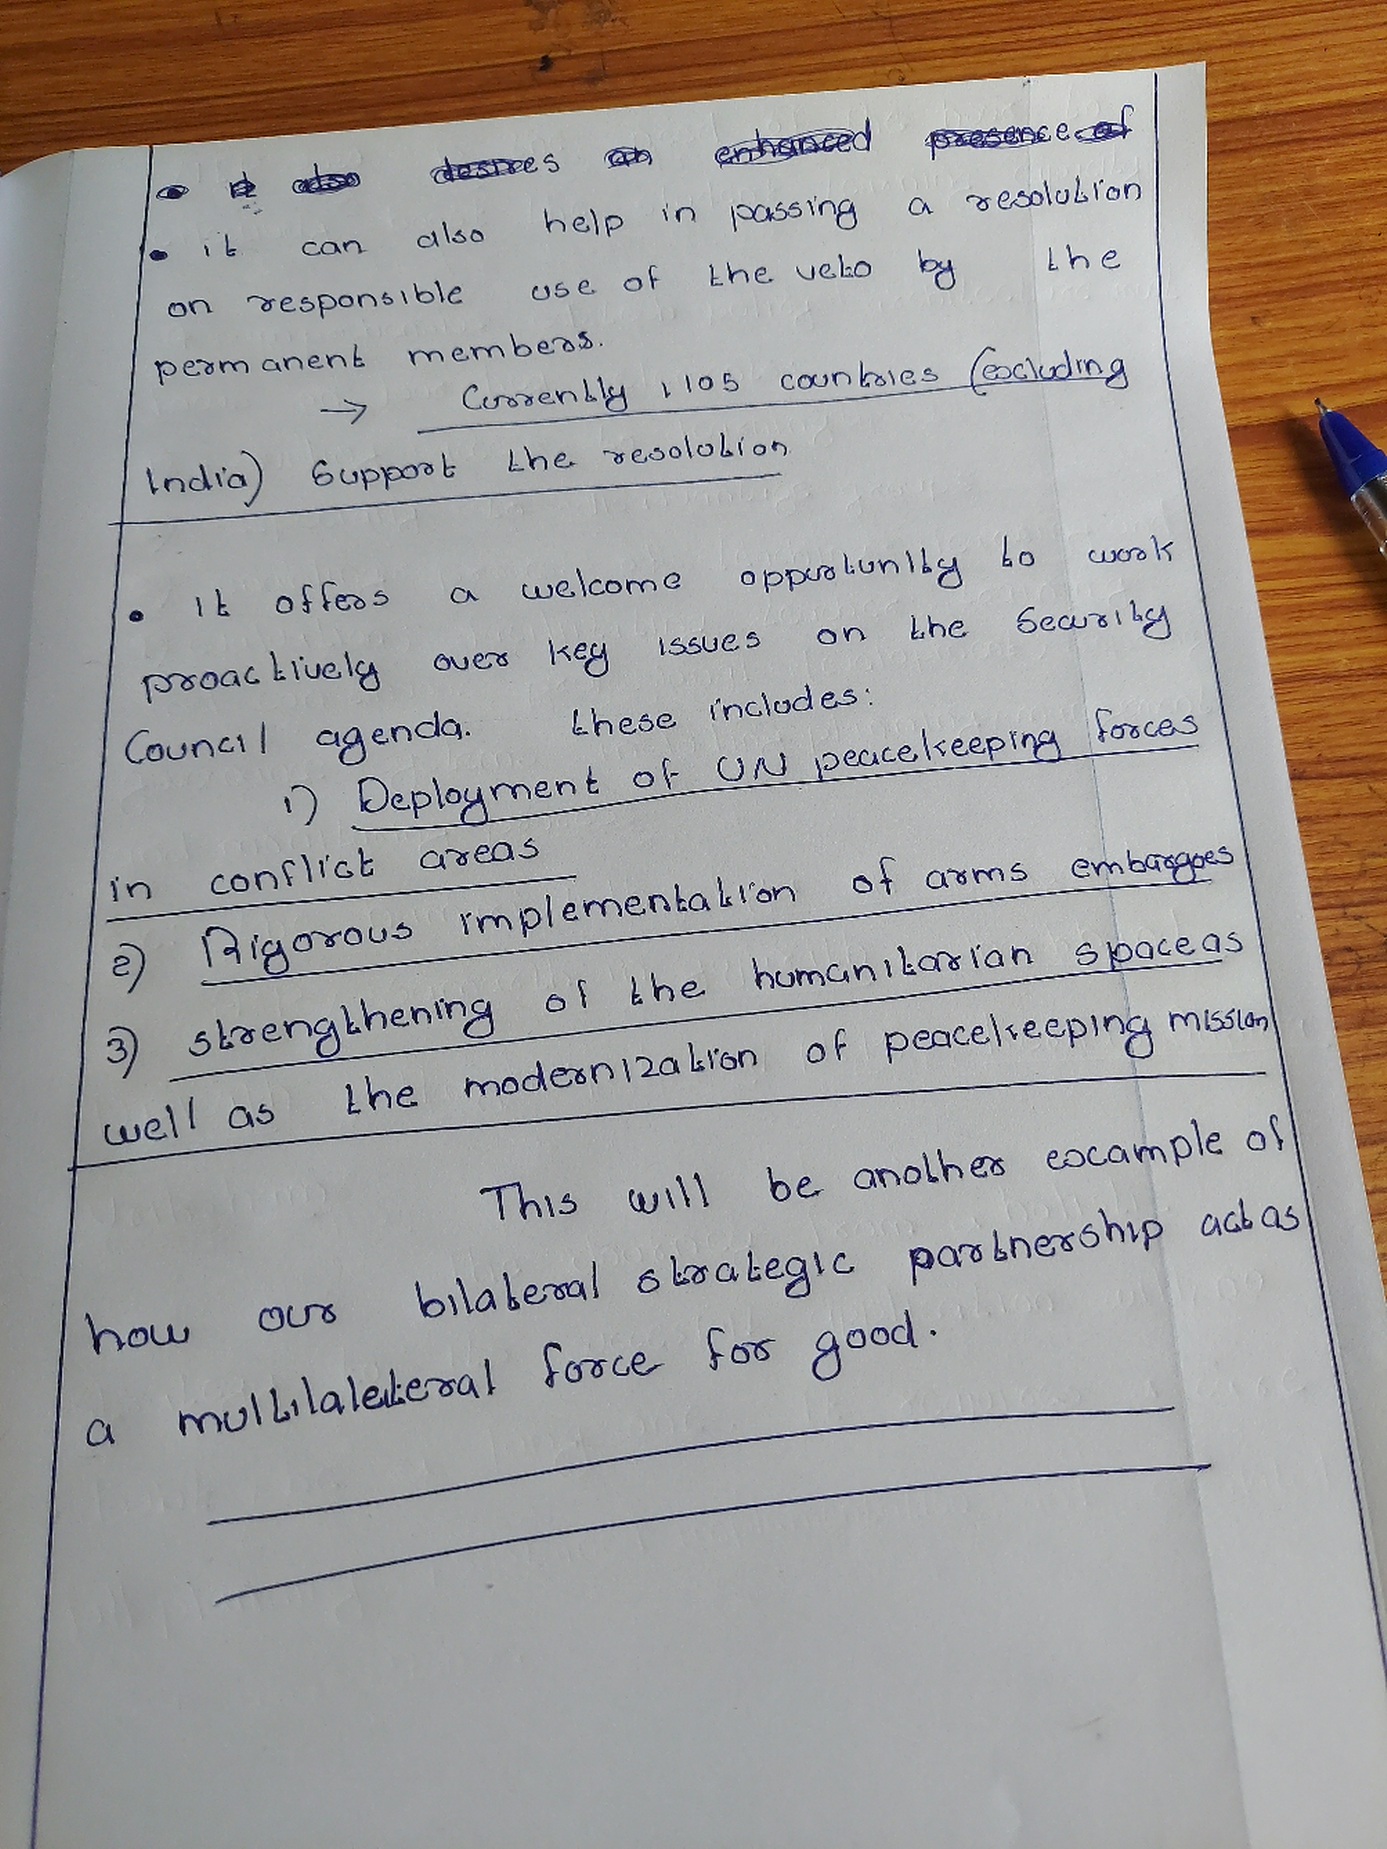 • it also desires an enhanced presence of
• it can also help in passing a resolution
on responsible use of the veto by the
permanent members.
→ Currently, 105 countries (excluding
India) Support the resolution
• it offers a welcome opportunity to work
proactively over key issues on the Security
Council agenda. these includes:
1) Deployment of UN peacekeeping forces
in conflict areas
2) Rigorous implementation of arms embargoes
3) strengthening of the humanitarian space as
well as the modernization of peacekeeping mission
This will be another example of
how our bilateral strategic partnership act as
a multilaleteral force for good.